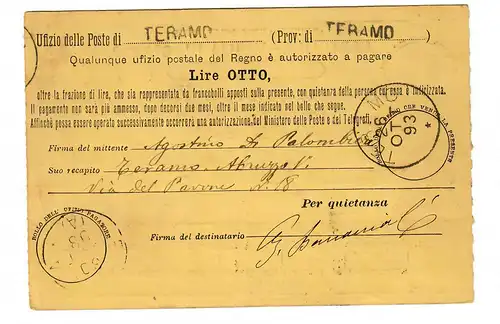 Ufizio delle Poste di TERAMO (Prov: di TERAMO)
Qualunque ufizio postale del Regno è autorizzato a pagare
Lire OTTO,
oltre la frazione di lire, che sia rappresentata da francobolli apposti sulla presente, con quietanza della persona cui essa è indirizzata.
Il pagamento non sarà più ammesso, dopo decorsi due mesi, oltre il mese indicato nel bollo che segue.
Affinchè possa essere operato successivamente occorrerà una autorizzazione del Ministero delle Poste e dei Telegrafi.
Firma del mittente Agostino Di Palombieri
Suo recapito Teramo Abruzzi
Via del Pavone N. 18
Per quietanza
Firma del destinatario G.
BOLLO DELL' UFIZIO PAGATORE
CON CHE VENNE LA PRESENTE
6 OTT 93